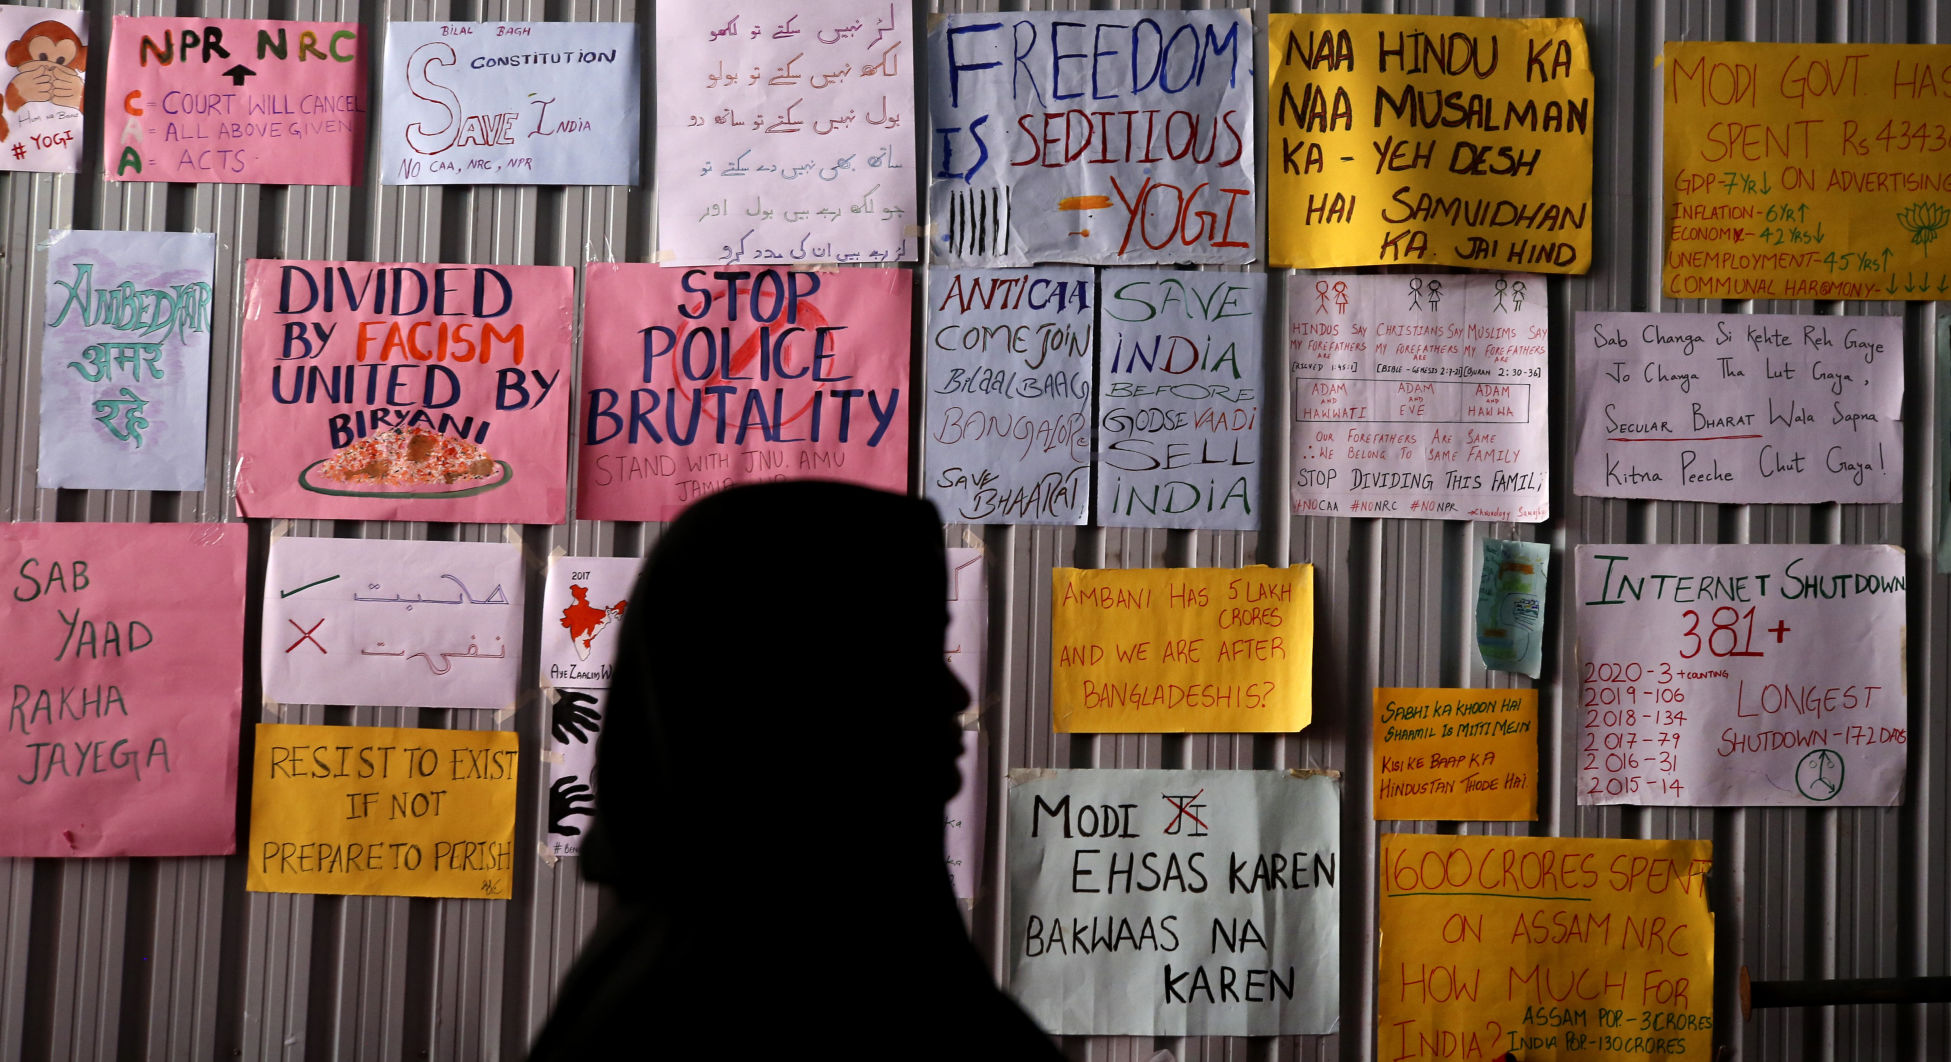 # YOGI
NPR NRC
C = COURT WILL CANCEL
A = ALL ABOVE GIVEN
A = ACTS
BILAL BAGH
CONSTITUTION
SAVE INDIA
NO CAA, NRC, NPR
لڑ نہیں سکتے تو لکھو
لکھ نہیں سکتے تو بولو
بول نہیں سکتے تو ساتھ دو
ساتھ بھی نہیں دے سکتے تو
جو لکھ رہے ہیں بول اور
لڑ رہے ہیں ان کی مدد کرو
FREEDOM
IS SEDITIOUS
- YOGI
NAA HINDU KA
NAA MUSALMAN
KA - YEH DESH
HAI SAMVIDHAN
KA. JAI HIND
MODI GOVT. HAS
SPENT Rs 4343
ON ADVERTISING
GDP-7YR↓
INFLATION-6YR↑
ECONOMY-42YRS↓
UNEMPLOYMENT-45YRS↑
COMMUNAL HARMONY-↓↓↓↓
AMBEDKAR
अमर
रहे
DIVIDED
BY FACISM
UNITED BY
BIRYANI
STOP
POLICE
BRUTALITY
STAND WITH JNU. AMU
ANTICAA
COME JOIN
BiLAAL BAAG
BANGALORe
SAVE
BHAARAT!
SAVE
iNDiA
BEFORE
GODSEVAADi
SELL
iNDiA
HINDUS SAY
MY FOREFATHERS
ARE
[RIGVED 1:45:1]
ADAM
AND
HAWWATI
CHRISTIANS SAY
MY FOREFATHERS
ARE
[BIBLE - GENESIS 2:7-21]
ADAM
AND
EVE
MUSLIMS SAY
MY FOREFATHERS
ARE
[QURAN 2:30-36]
ADAM
AND
HAWWA
OUR FOREFATHERS ARE SAME
∴ WE BELONG TO SAME FAMILY
STOP DIVIDING THIS FAMILi
#NOCAA #NONRC #NONPR
Sab Changa Si Kehte Reh Gaye
Jo Changa Tha Lut Gaya,
SECULAR BHARAT Wala Sapna
Kitna Peeche Chut Gaya!
SAB
YAAD
RAKHA
JAYEGA
✓ محبت
✗ نفرت
2017
AYE ZAALIM
RESIST TO EXIST
IF NOT
PREPARE TO PERISH
AMBANI HAS 5 LAKH
CRORES
AND WE ARE AFTER
BANGLADESHIS?
INTERNET SHUTDOWN
381+
2020 - 3 + COUNTING
2019 - 106
2018 - 134
2017 - 79
2016 - 31
2015 - 14
LONGEST
SHUTDOWN - 172 DAYS
SABHI KA KHOON HAI
SHAAMIL IS MITTI MEIN
KISI KE BAAP KA
HINDUSTAN THODE HAI.
MODI JI
EHSAS KAREN
BAKWAAS NA
KAREN
1600 CRORES SPENT
ON ASSAM NRC
HOW MUCH FOR
INDIA?
ASSAM POP. - 3 CRORES
INDIA POP. - 130 CRORES